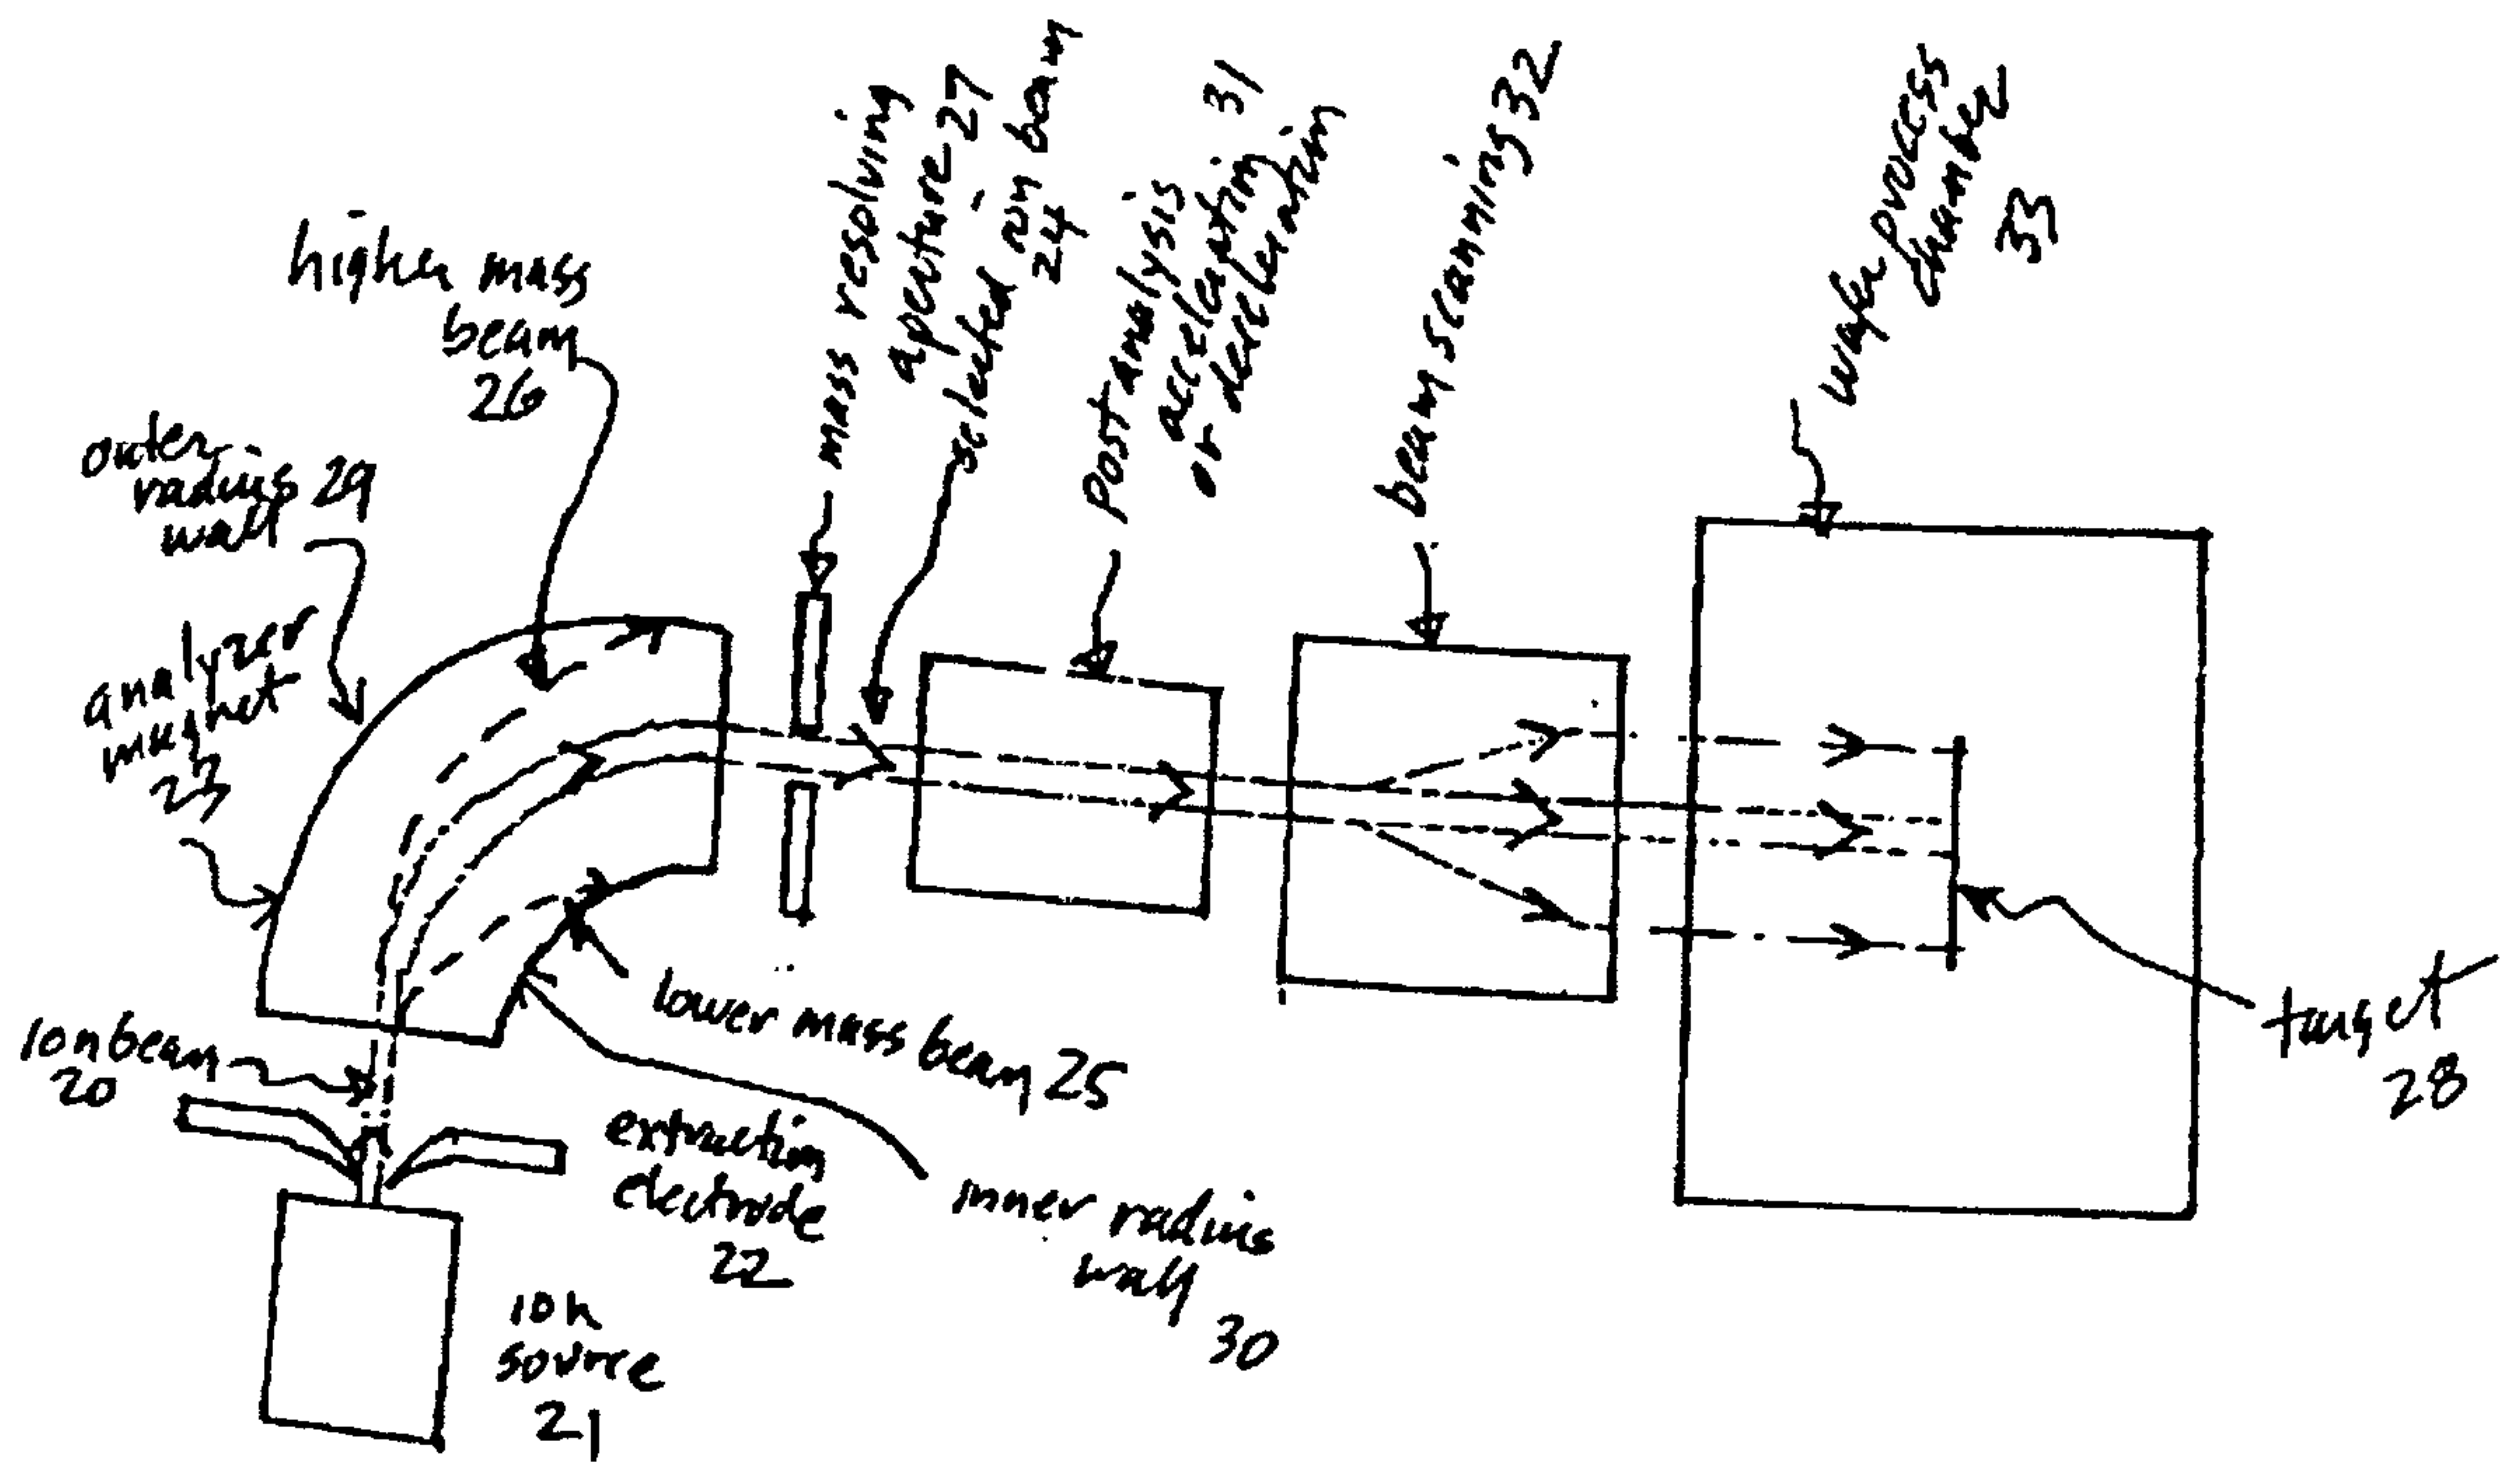 higher mass
beam
26
outer
radius 29
wall
analyzer
magnet
23
mass resolving
aperture 27
selected ion beam
24
post analysis
accelerating 31
or deceleration
beam scanning 32
wafer process
chamber
33
ion beam
20
lower mass beam 25
extraction
electrode
22
inner radius
wall
30
ion
source
21
target
28